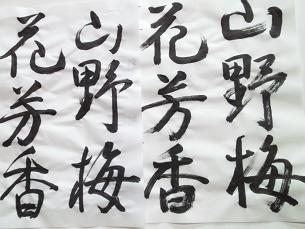 山野梅
花芳香
山野梅
花芳香